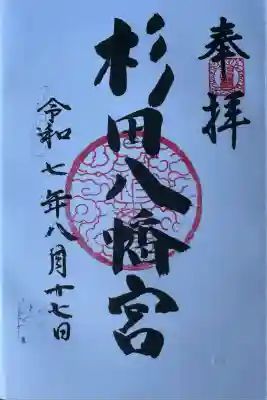 奉拝
杉田八幡宮
令和七年八月十七日